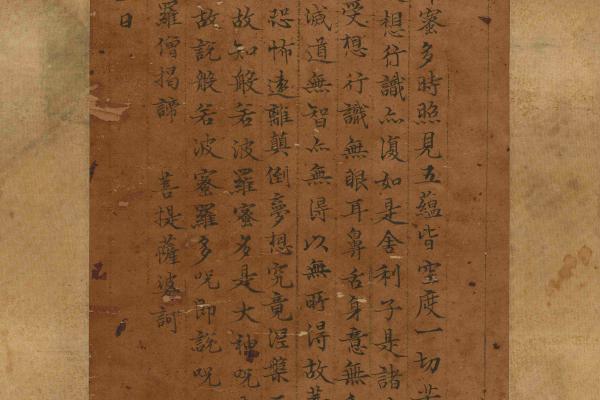 蜜多時照見五蘊皆空度一切苦
想行識亦復如是舍利子是諸
受想行識無眼耳鼻舌身意無
滅道無智亦無得以無所得故菩
恐怖遠離顛倒夢想究竟涅槃
故知般若波羅蜜多是大神呪
故說般若波蜜羅多呪即說呪
羅僧揭諦 菩提薩婆訶
日